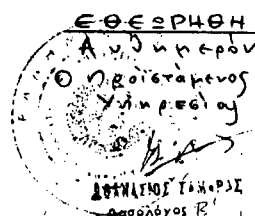 ΕΘΕΩΡΗΘΗ
Αυθημερόν
Ο Προϊστάμενος
Υπηρεσίας
ΑΘΑΝΑΣΙΟΣ
Δασολόγος Β'